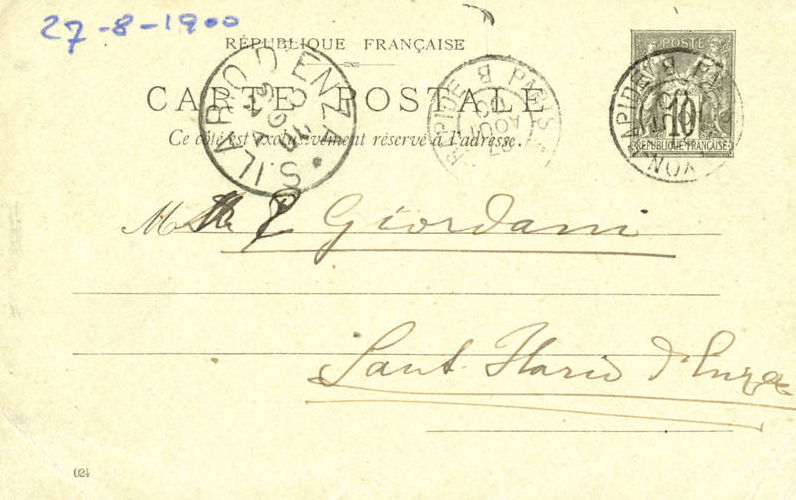 27-8-1900
RÉPUBLIQUE FRANÇAISE
CARTE POSTALE
Ce côté est exclusivement réservé à l'adresse.
S. ILARIO D'ENZA
RAPIDE B PARIS
27 AOUT 00
POSTE
10
REPUBLIQUE FRANÇAISE
RAPIDE B PA
LYON
M Giordani
Sant Ilario d'Enza
024